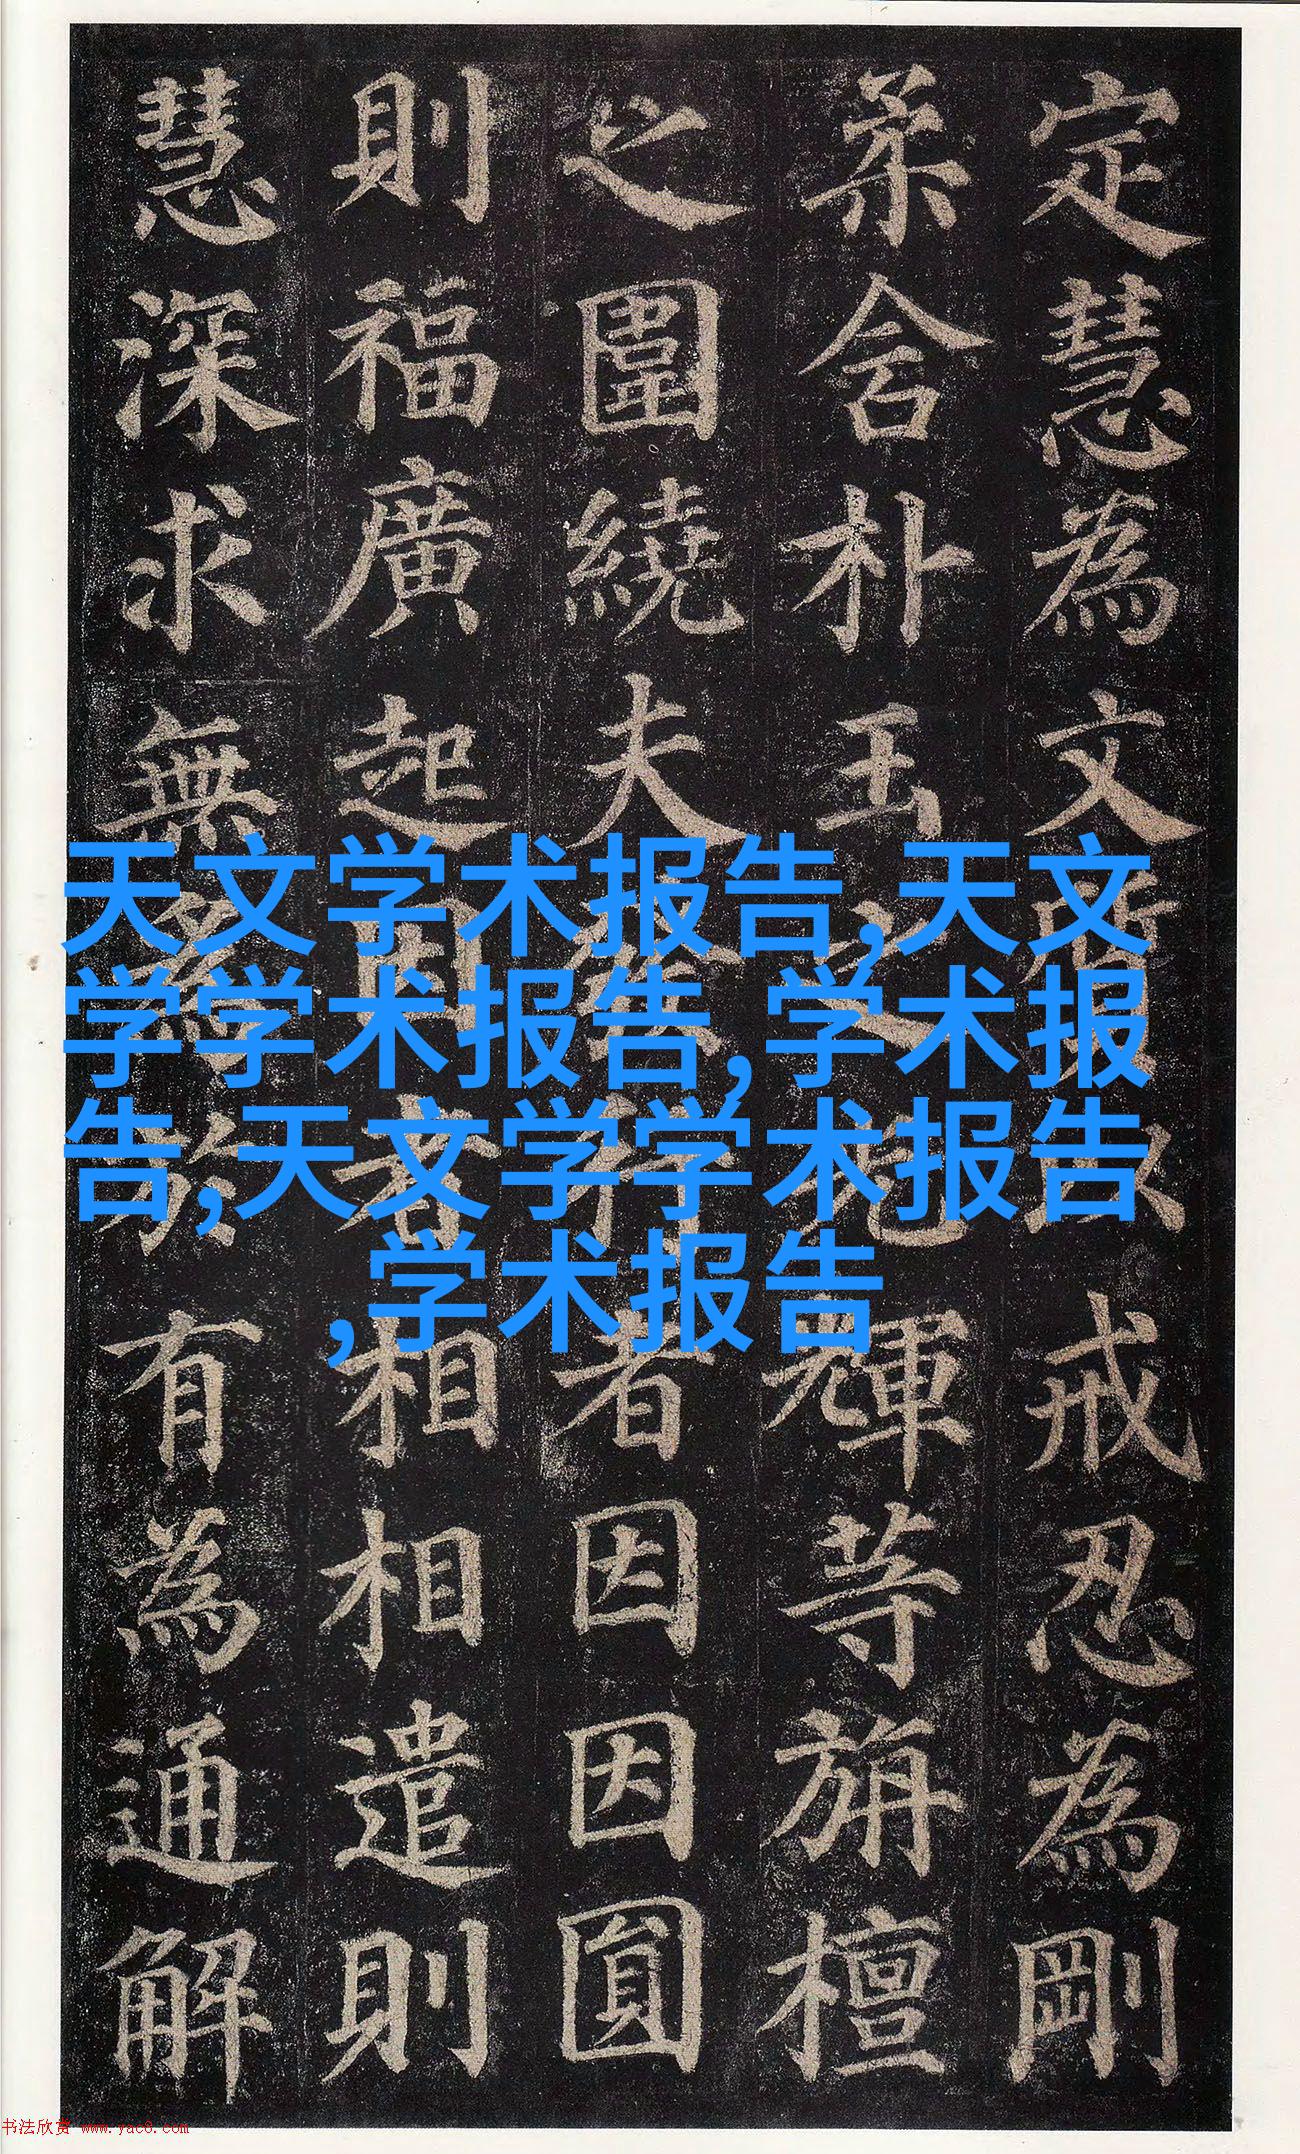 定慧為文質以戒忍為剛
柔含朴玉之光輝等旃檀
之圍繞夫發行者因因圓
則福廣起因者相相遣則
慧深求無為於有為通解
天文学术报告,天文
学学术报告,学术报
告,天文学学术报告
,学术报告
书法欣赏 www.yac8.com